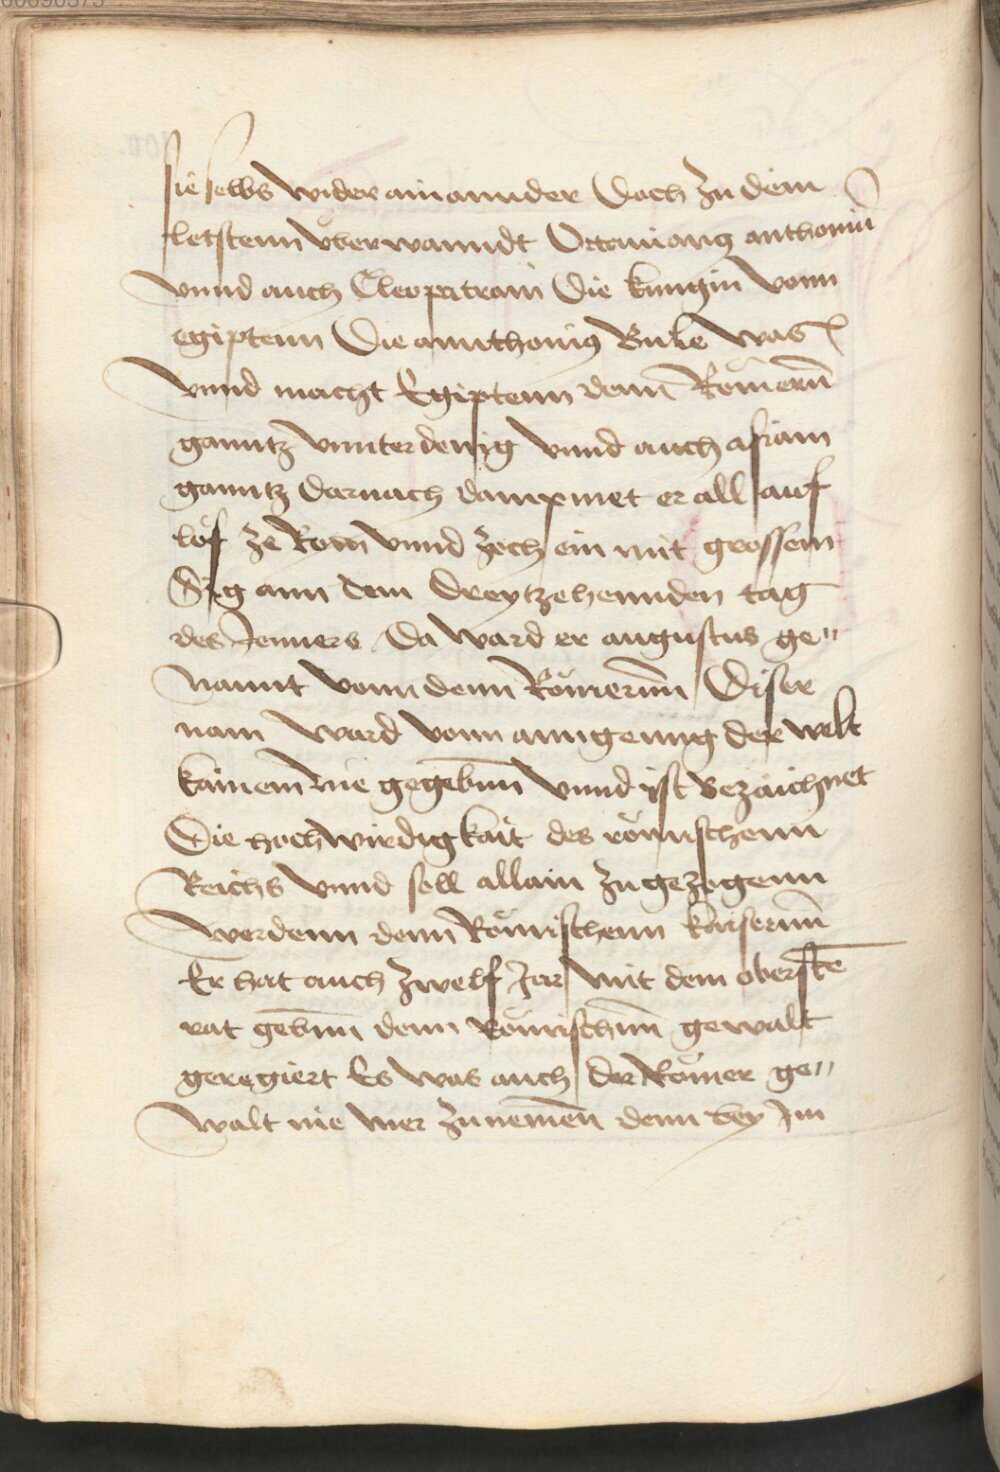 sie selbs wider ainannder Doch zu dem
letstenn vberwanndt Octauianus anthonium
vnnd auch Cleopatram Die kungin vonn
egiptenn Die annthonius Bule was
vnnd macht Egiptenn denn Römern
ganntz vnnterdenig vnnd auch asiam
ganntz Darnach dampmet er all auf
löf ze Rom vnnd zoch ein mit grossem
Sig ann dem Dreytzehennden tag
des Jenners Da ward er augustus ge"
nannt vonn denn Römernn Diser
nam ward vonn anngenng der welt
kainem nie gegebenn vnnd ist Bezaichnet
Die hochwirdigkait des römischenn
Reichs vnnd soll allain zugezogenn
werdenn denn Römischenn kaisernn
Er hat auch zwelf Jar mit dem oberste
rat gebenn denn Römischenn gewalt
geregiert Es was auch der Römer ge"
walt nie mer zunemen denn bey Im